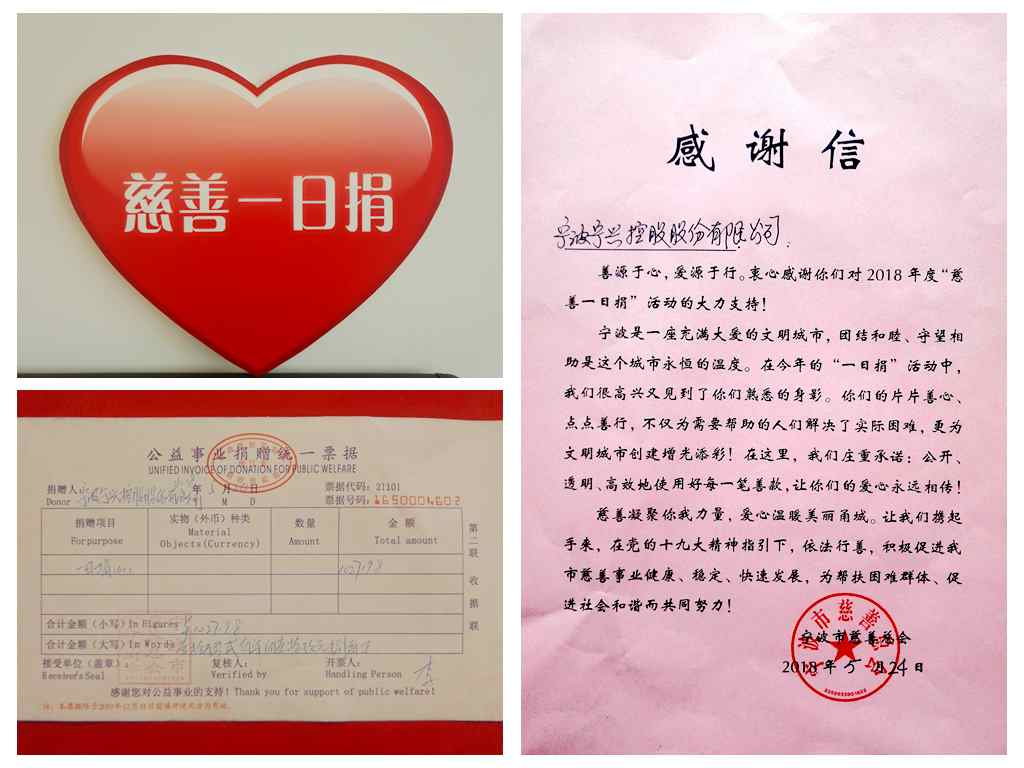 慈善一日捐
公益事业捐赠统一票据
UNIFIED INVOICE OF DONATION FOR PUBLIC WELFARE
捐赠人
Donor
年 5 月 日
Y M D
票据代码：27101
票据号码：1650004602
捐赠项目
For purpose
实物（外币）种类
Material
Objects(Currency)
数量
Amount
金 额
Total amount
第二联 收据联
合计金额（小写）In Figures
合计金额（大写）In Words
接受单位（盖章）：
Receiver's Seal
复核人：
Verified by
开票人：
Handling Person
感谢您对公益事业的支持！Thank you for support of public welfare!
感谢信
宁波宁兴控股股份有限公司.
善源于心，爱源于行。衷心感谢你们对 2018 年度“慈
善一日捐”活动的大力支持！
宁波是一座充满大爱的文明城市，团结和睦、守望相
助是这个城市永恒的温度。在今年的“一日捐”活动中，
我们很高兴又见到了你们熟悉的身影。你们的片片善心、
点点善行，不仅为需要帮助的人们解决了实际困难，更为
文明城市创建增光添彩！在这里，我们庄重承诺：公开、
透明、高效地使用好每一笔善款，让你们的爱心永远相传！
慈善凝聚你我力量，爱心温暖美丽甬城。让我们携起
手来，在党的十九大精神指引下，依法行善，积极促进我
市慈善事业健康、稳定、快速发展，为帮扶困难群体、促
进社会和谐而共同努力！
宁波市慈善总会
2018 年 5 月 24 日